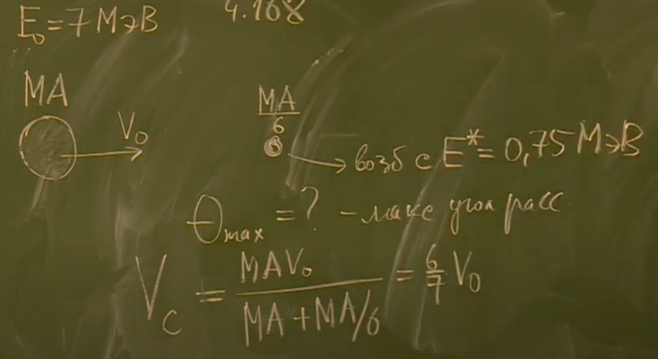 E₀ = 7 МэВ
4.168
МА
V₀
МА/6
возб с E* = 0,75 МэВ
Θmax = ? - макс угол расс
Vc = МАV₀/(МА + МА/6) = 6/7 V₀